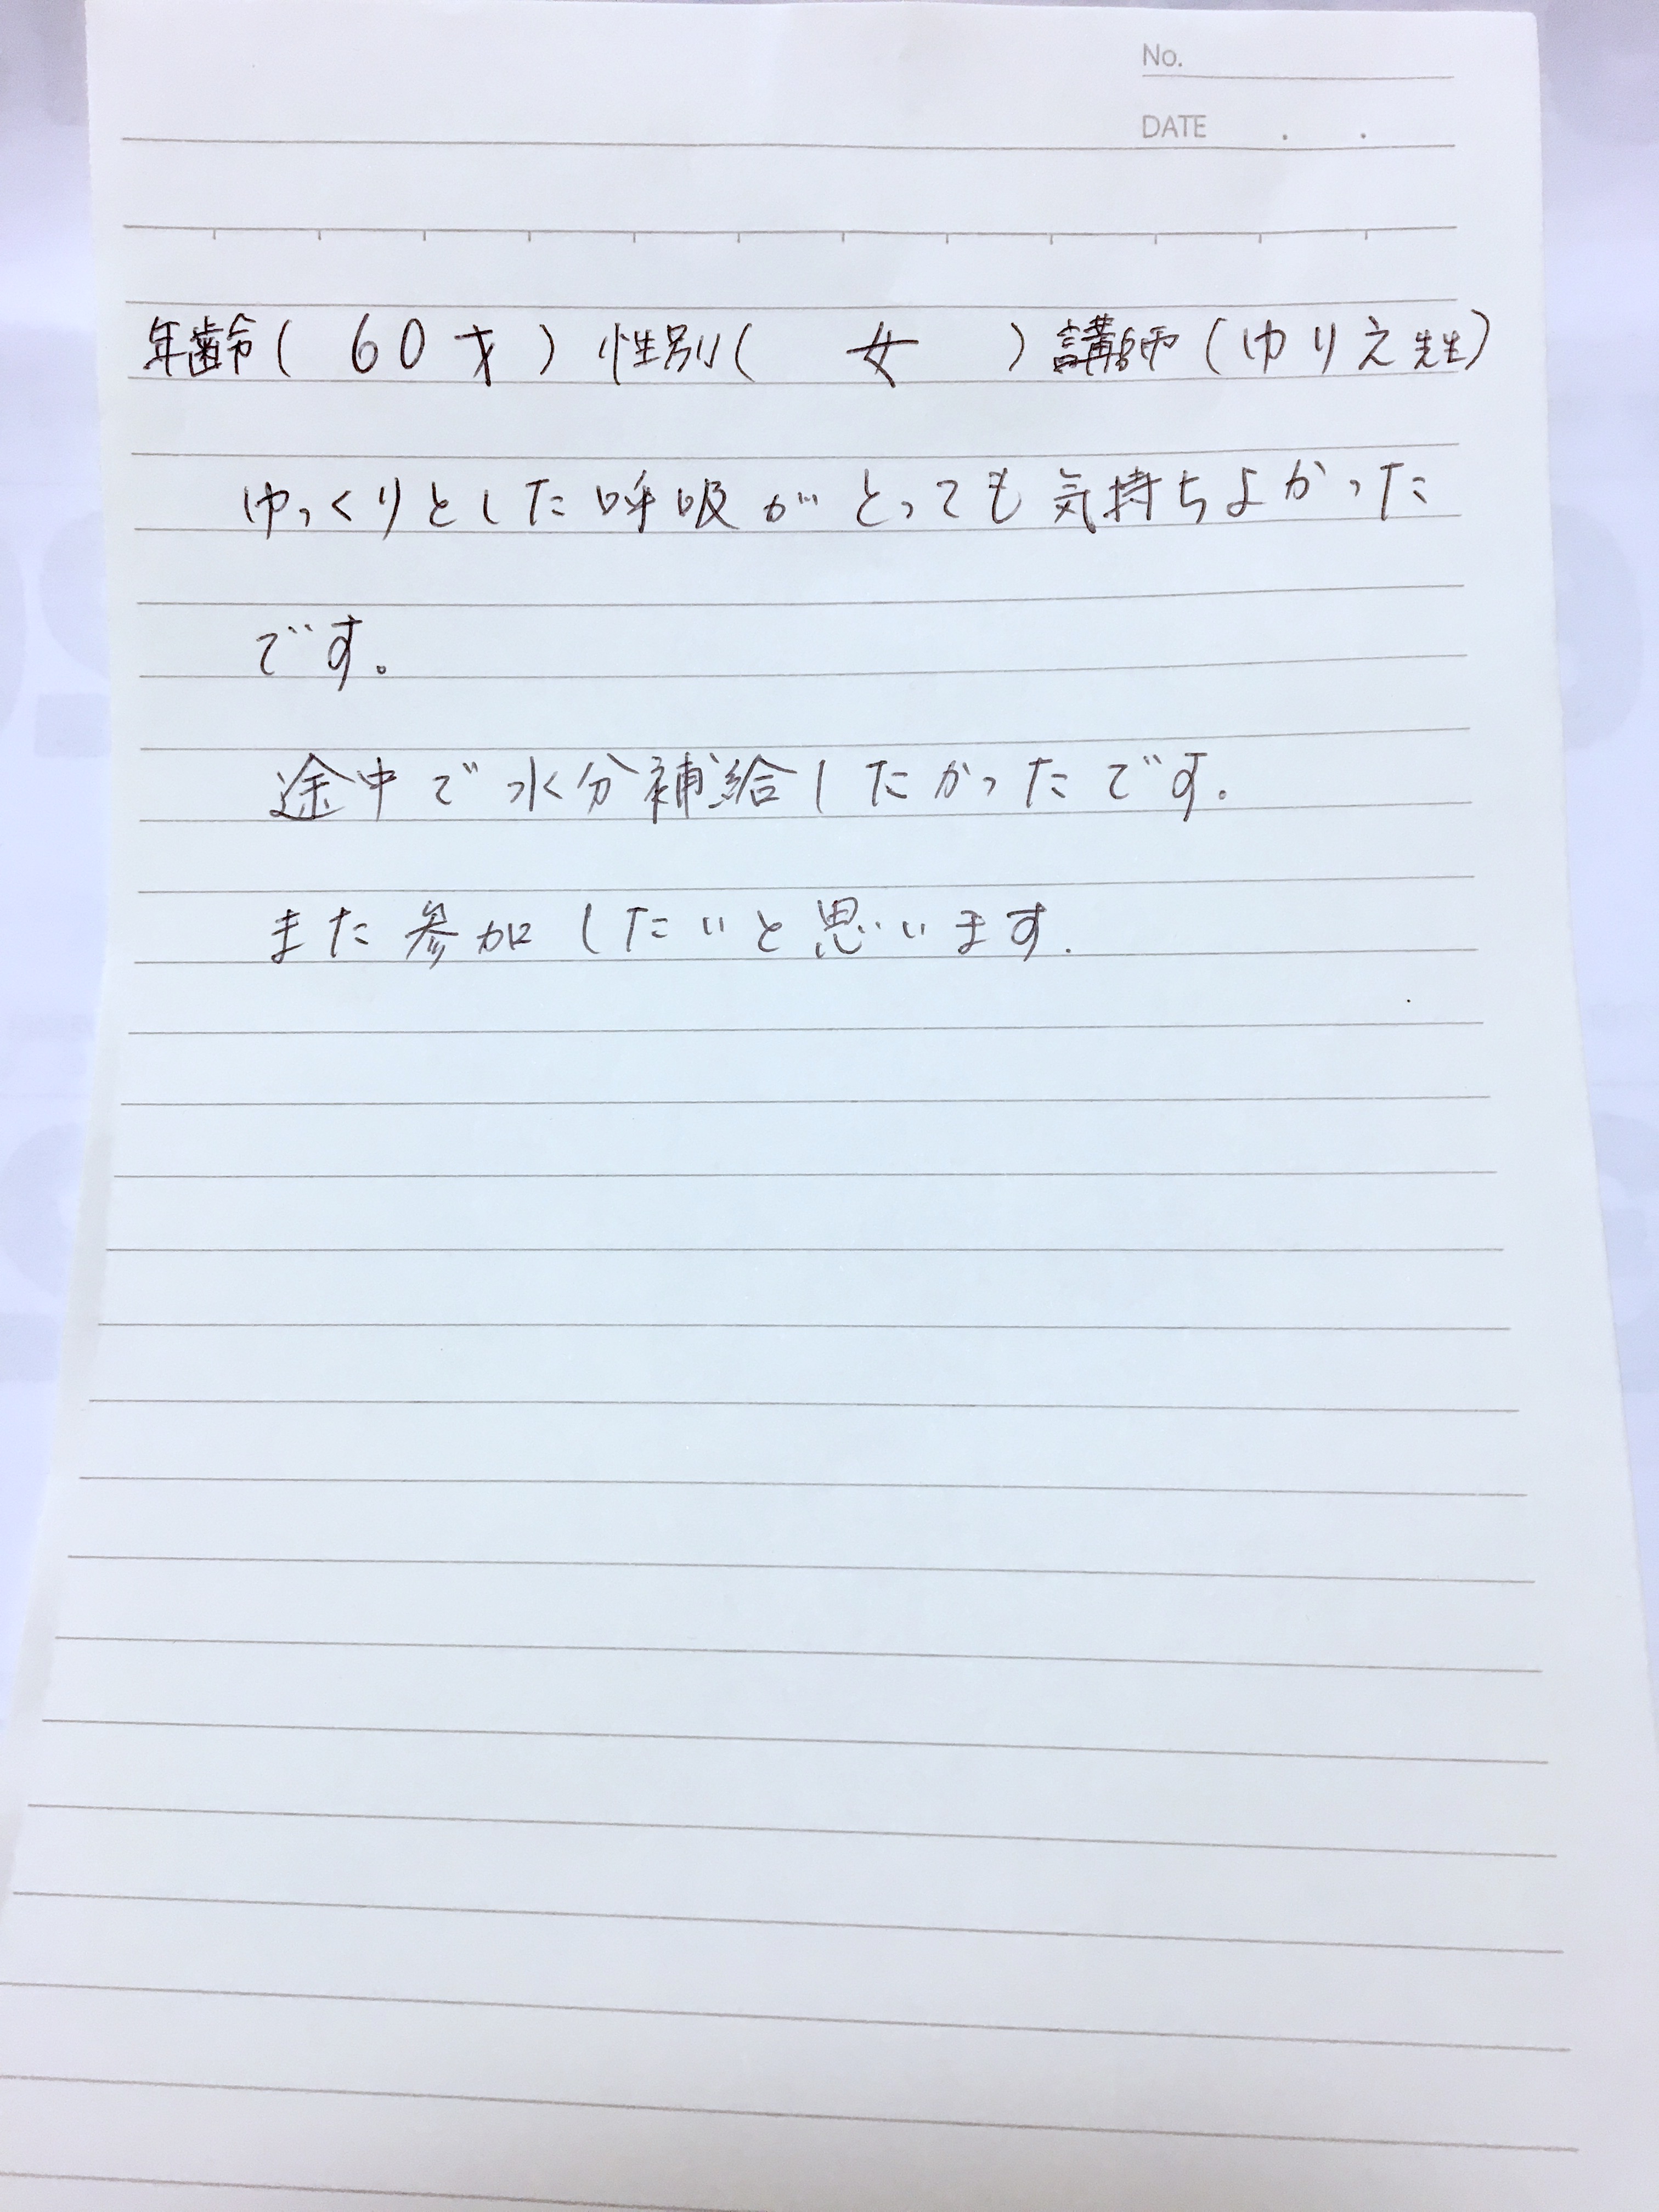 No.
DATE . .
年齢( 60才 ) 性別( 女 ) 講師(ゆりえ先生)
ゆっくりとした呼吸がとっても気持ちよかった
です。
途中で水分補給したかったです.
また参加したいと思います.